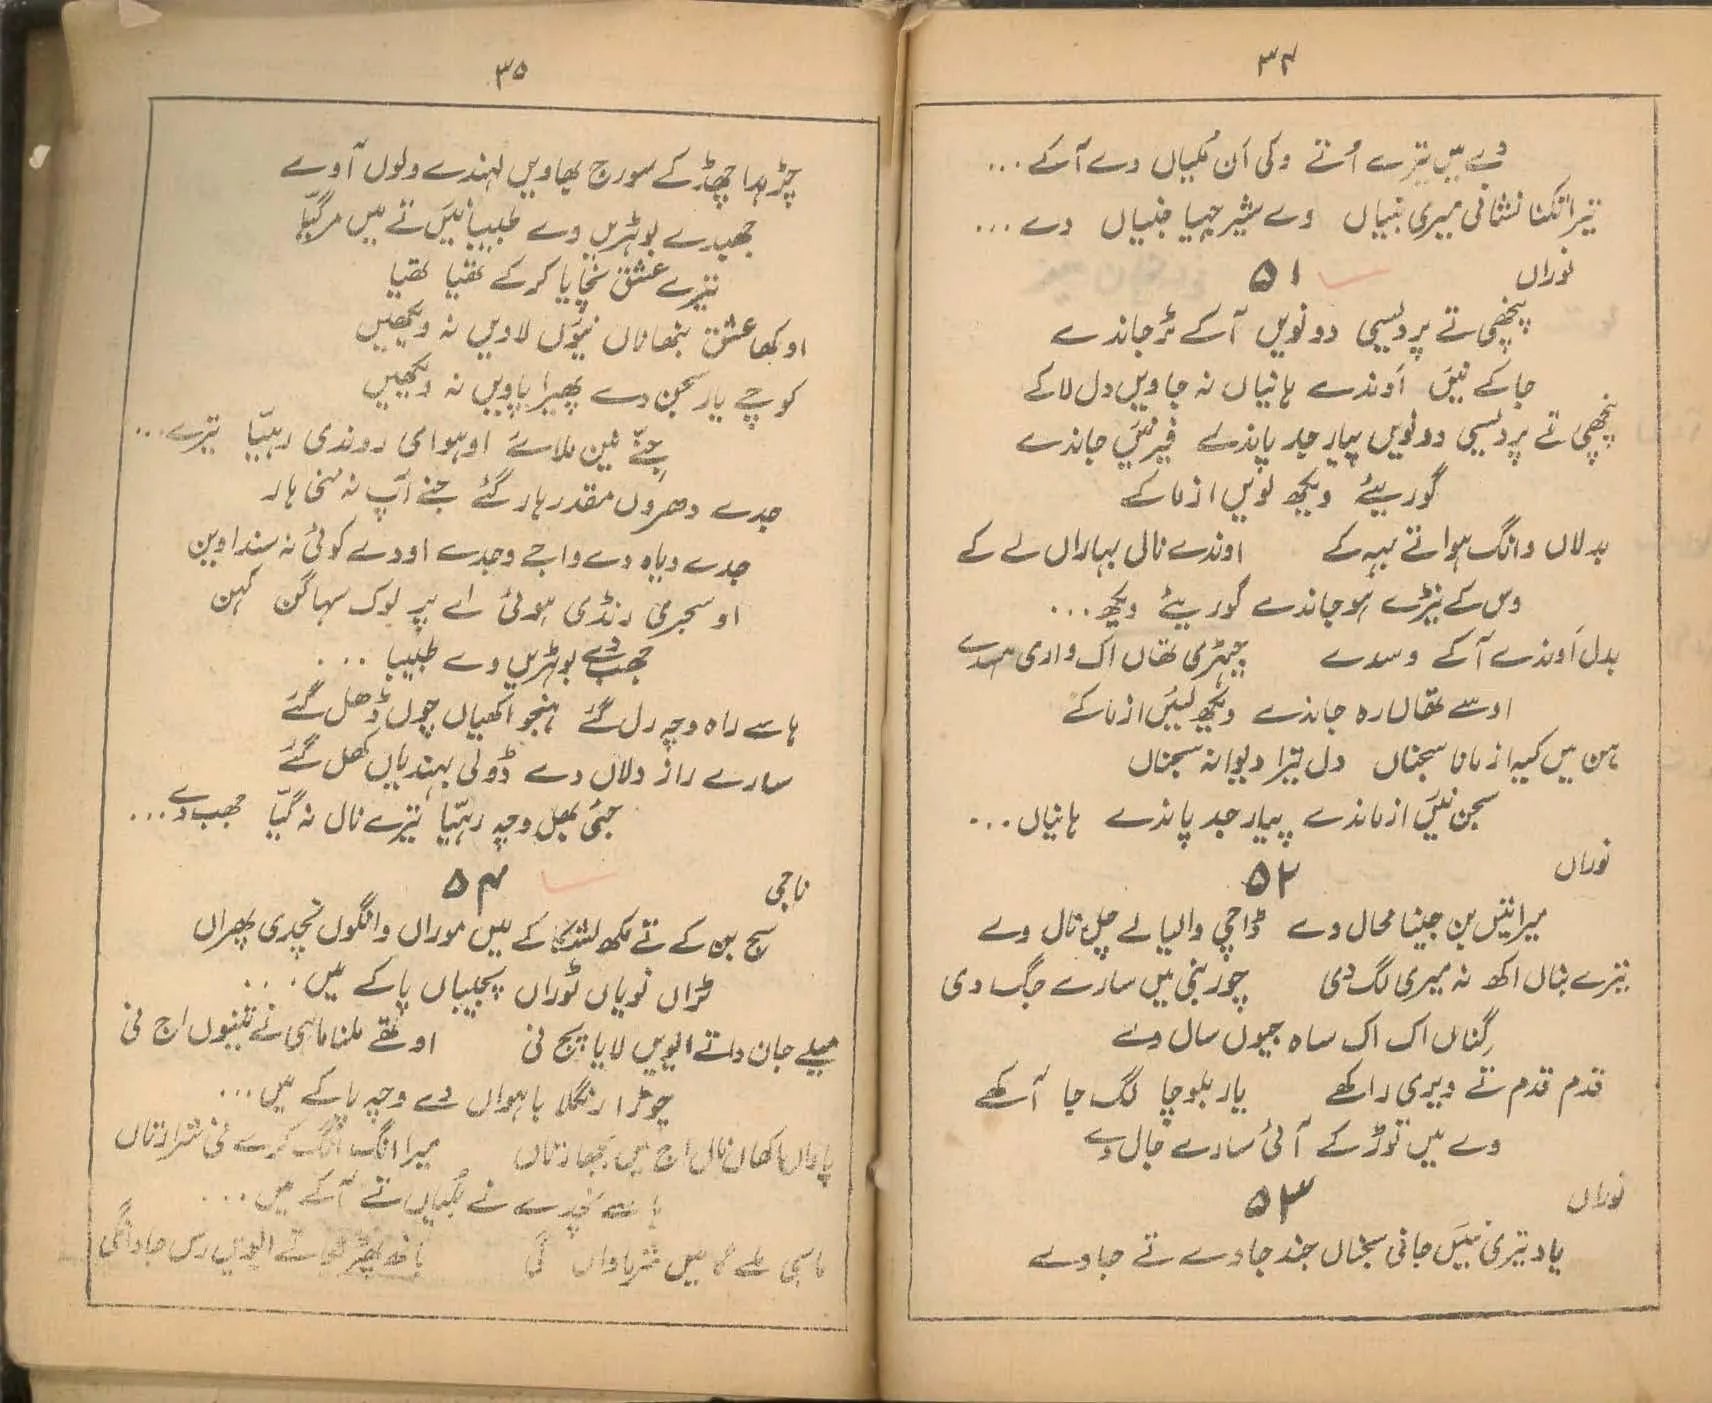 ۳۴
وے میں تیرے اُتے وکی اَن مُلیاں دے آ کے ...
تیرا تکنا نشانی میری بنیاں وے شیر جہیا جنیاں وے ...
نوراں
۵۱
پنچھی تے پردیسی دونویں آ کے مُڑ جاندے
جا کے نیئں اَوندے ہانیاں نہ جاویں دل لا کے
پنچھی تے پردیسی دونویں پیار جد پاندے فیر نیئں جاندے
گوریئے ویکھ لویں ازما کے
بدلاں وانگ ہوا تے بہہ کے اوندے نال بہاراں لے کے
وس کے نیڑے ہو جاندے گوریئے ویکھ ...
بدل اَوندے آ کے وسدے جیہڑی تھاں اک واری ہسدے
اوسے تھاں رہ جاندے ویکھ لیئں ازما کے
ہن میں کیہ ازمانا سجناں دل تیرا دیوانہ سجناں
سجن نیئں ازماندے پیار جد پاندے ہانیاں ...
نوراں
۵۲
میرا تیں بن جینا محال وے ڈاچی والیا لے چل نال وے
تیرے بناں اکھ نہ میری لگ دی چور بنی میں سارے جگ دی
گِناں اک اک ساہ جیوں سال وے
قدم قدم تے ویری راکھے یار بلوچا لگ جا آکھے
وے میں توڑ کے آئی سارے جال وے
نوراں
۵۳
یاد تیری نیئں جانی سجناں جند جاوے تے جاوے
۳۵
چڑھدا چھڈ کے سورج بھاویں لہندے ولوں آوے
چھیدے بوہڑیں وے طبیبا نیئں تے میں مر گیّا
تیرے عشق نچایا کر کے تھیّا تھیّا
اوکھا عشق نبھاناں نیوں لاویں نہ ویکھیں
کوچے یار سجن دے پھیرا پاویں نہ ویکھیں
جنّے نین ملائے اوہو ای روندی رہیّا تیرے ...
جدے دھروں مقدر ہار گئے جنے آپ نہ منی ہار
جدے ویاہ دے واجے وجدے اودے کوئی نہ سندا وین
او سجری رنڈی ہوئی اے پر لوک سہاگن کہن
چھب دے بوہڑیں وے طبیبا ...
ہاسے راہ وچہ رل گئے ہنجو اکھیاں چوں ڈھل گئے
سارے راز دلاں دے ڈولی بہندیاں کھل گئے
جئی بھل وچہ رہیّا تیرے نال نہ گیّا چھب دے ...
ناجی
۵۴
سج بن کے تے مکھ لشکا کے میں موراں وانگوں نچدی پھراں
ٹراں نویاں ٹوراں پجلیاں پا کے میں ...
میلے جان دا تے ایویں لایا پیج نی اوتھے ملنا ماہی نے تینوں اج نی
چوڑا رنگلا باہواں دے وچہ پا کے میں ...
پاواں اکھاں نال اج میں بجھارتاں میرا انگ انگ کرے نی شرارتاں
ہاسے نچدے نے بُلیاں تے آ کے میں ...
ماہی ملے گا میں شرماواں گی ہتھ پھڑو تے ایویں رس جاوانگی